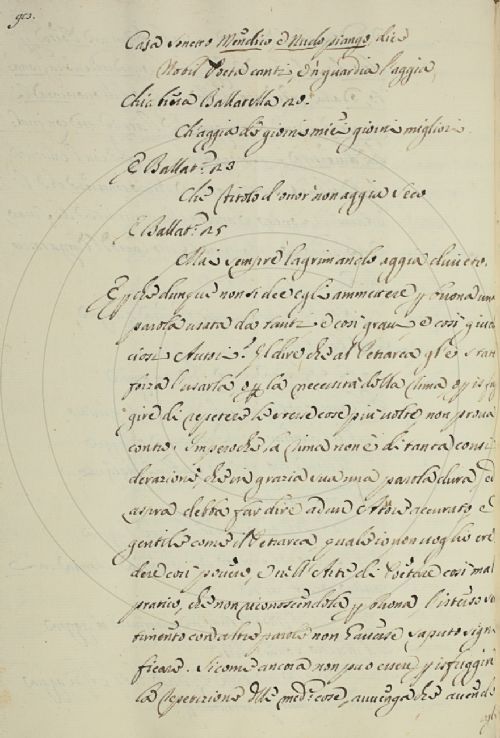 Casa sonetto Mendico e Nudo piango, dice
Nobil Poeta canti, e 'n guardia l'aggia
Ballatella 28.
Ch'aggia de' giorni miei giorni migliori.
E Ballat.ᵃ 23
Che titolo d'onor non aggia seco
E Ballat.ᵃ 25
Mai sempre lagrimando aggia divieto.
E perche dunque non si dee egli ammettere p buona una
parola usata da tanti e così gravi e così giudi
ciosi Autori? Il dire che al Petrarca gl'è stato
forza l'usarla p la necessità della rima, e p isfug
gire di repetere le stesse cose più volte non prova
contro. Imperoche la rima non è di tanta consi
derazione che in grazia sua una parola dura ed
aspra debba far dire ad un Autore accurato, e
gentile come il Petrarca, quale io non voglio cre
dere così povero, e nell'Arte di Poetare così mal
pratico, che non riconoscendola p buona l'istesso se
timento con altre parole non havesse saputo signi
ficare. Sicome ancora non può essere p isfuggire
la repetizione dłłe med.ᵉ cose, avvenga che avendo